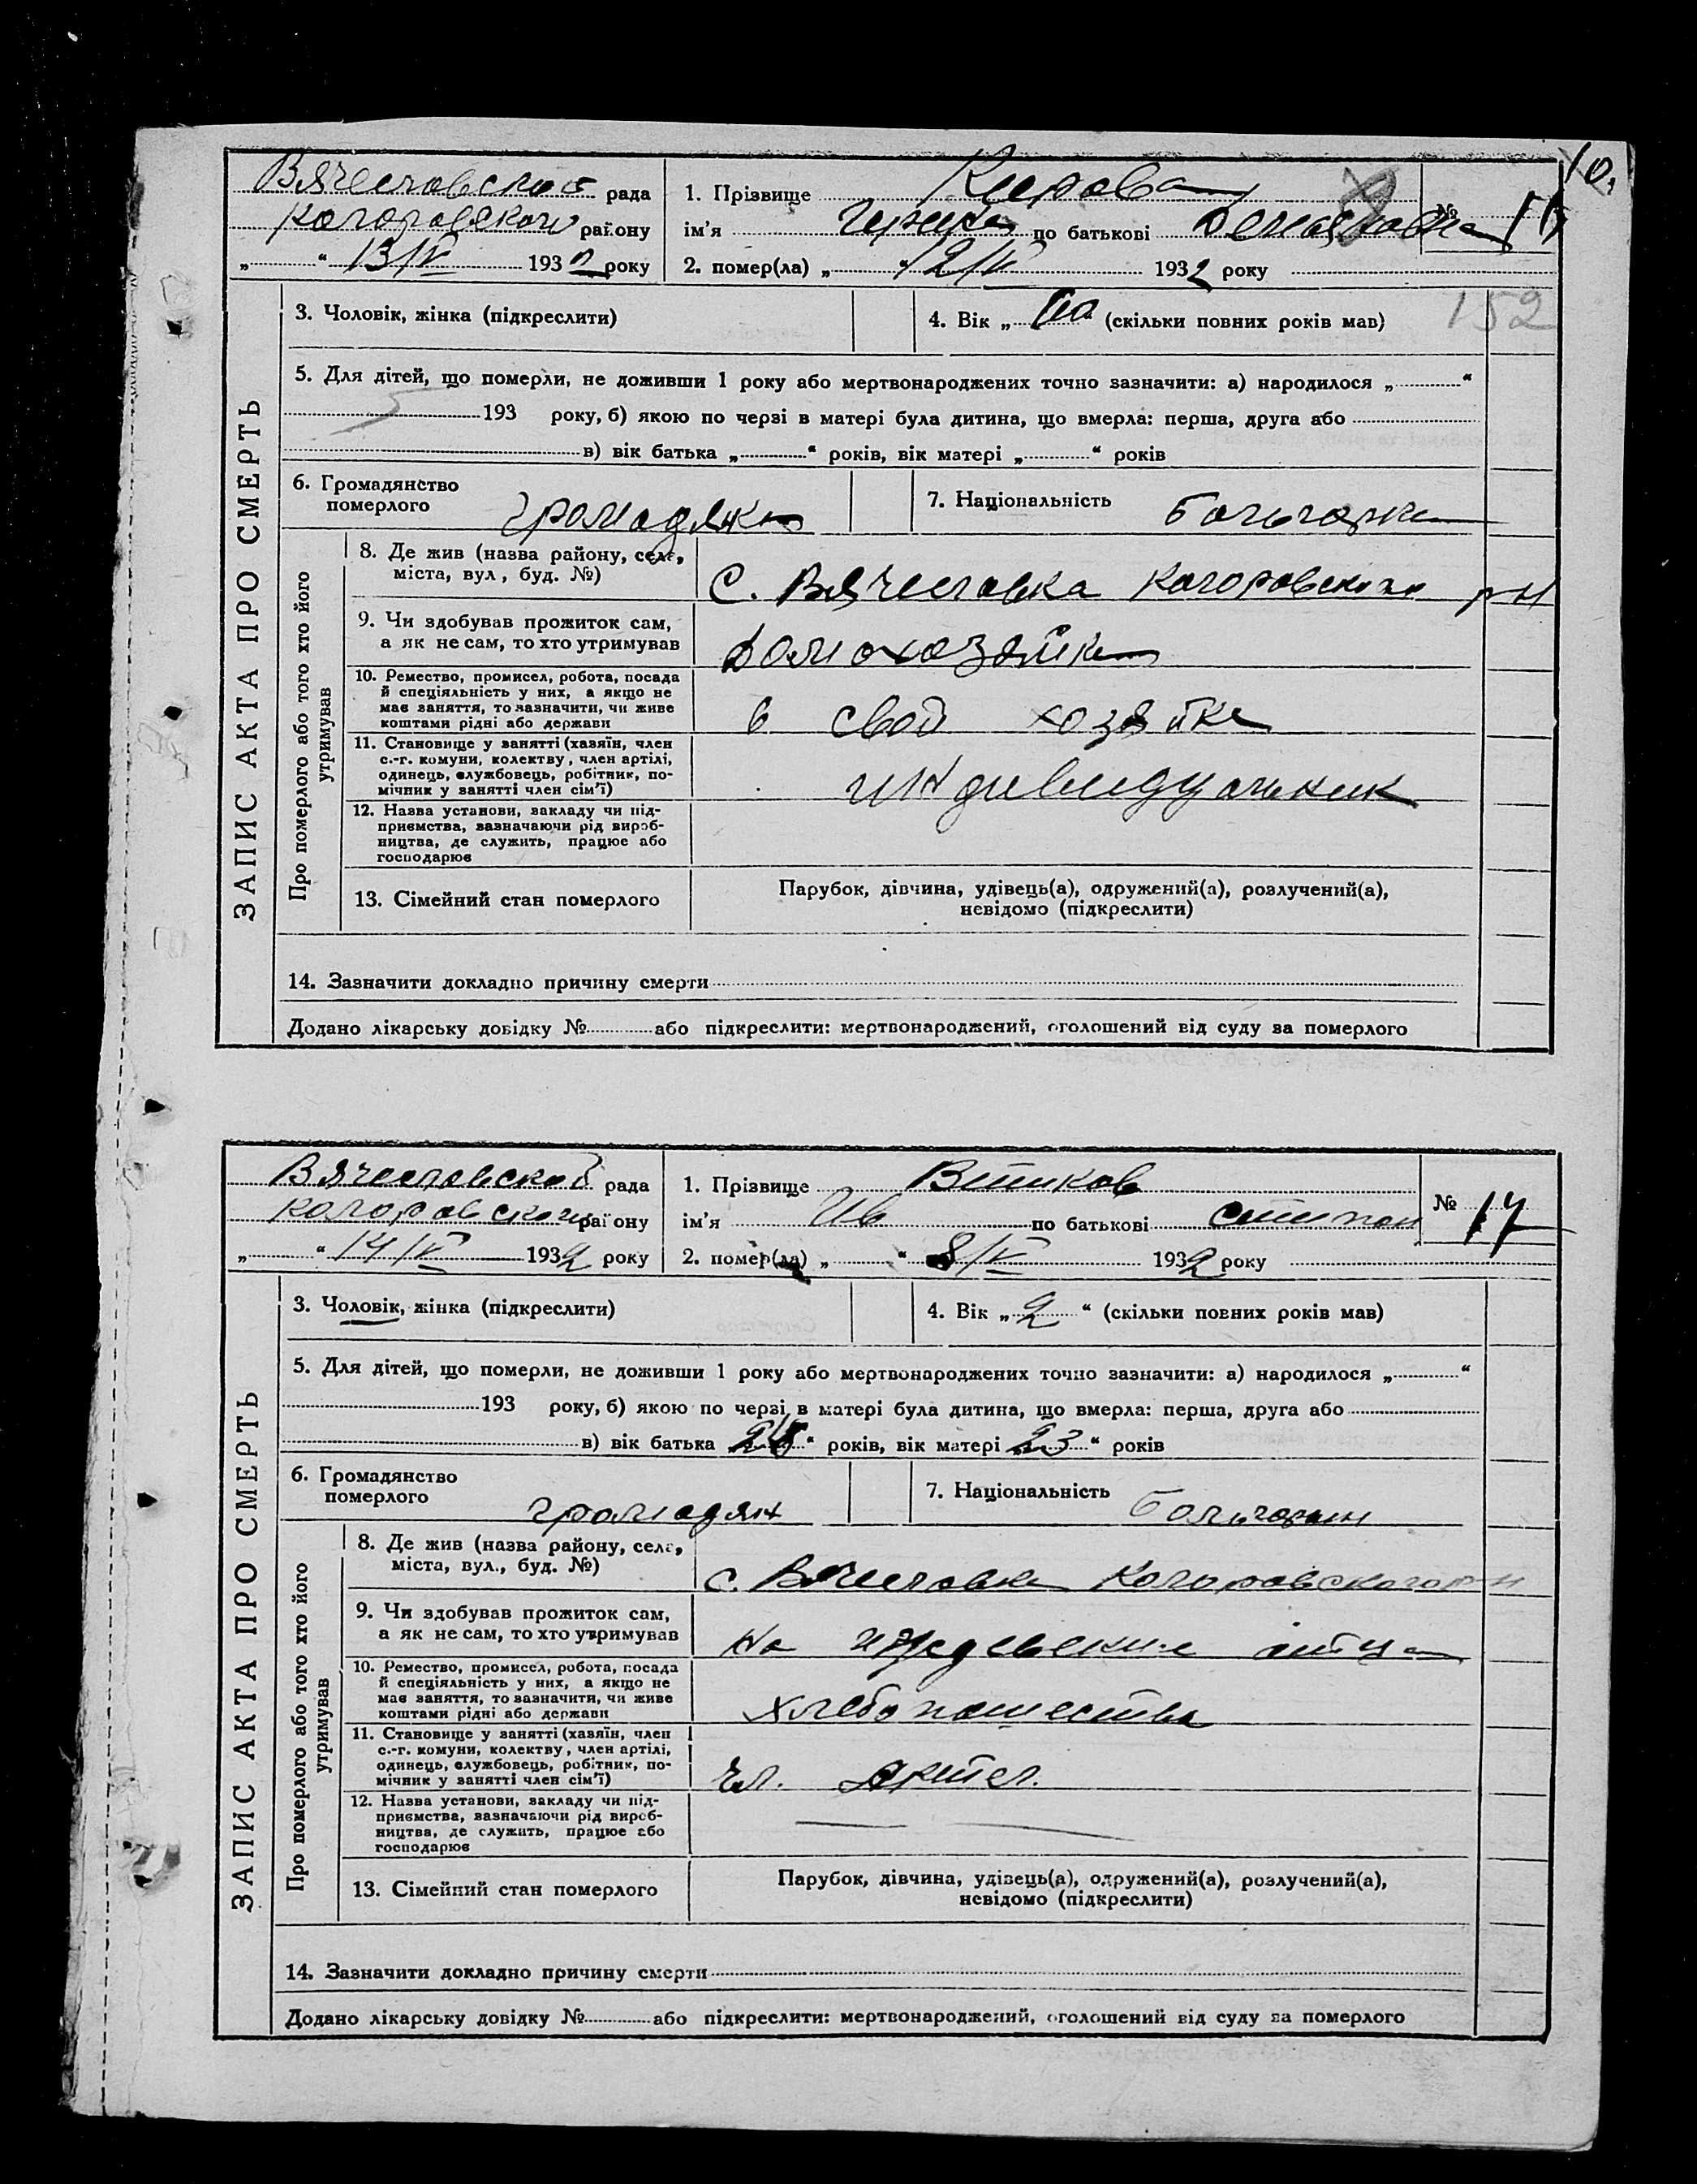 10.
Вячеславской рада
1. Прізвище Кирова
№
Коларовского району
ім'я по батькові
„ “ 13/IV 1932 року
2. помер(ла) „ “ 12/IV 1932 року
3. Чоловік, жінка (підкреслити)
4. Вік „ (скільки повних років мав)
152
5. Для дітей, що померли, не доживши 1 року або мертвонароджених точно зазначити: а) народилося „ “
193 року, б) якою по черзі в матері була дитина, що вмерла: перша, друга або
в) вік батька „ “ років, вік матері „ “ років
6. Громадянство
померлого громадянка
7. Національність болгарка
8. Де жив (назва району, села,
міста, вул., буд. №)
с. Вячеславка Коларовского р-н
9. Чи здобував прожиток сам,
а як не сам, то хто утримував
домохозяйка
10. Ремество, промисел, робота, посада
й спеціяльність у них, а якщо не
має заняття, то зазначити, чи живе
коштами рідні або держави
в свой хозяйке
11. Становище у занятті (хазяїн, член
с.-г. комуни, колектву, член артілі,
одинець, службовець, робітник, по-
мічник у занятті член сім'ї)
индивидуальник
12. Назва установи, закладу чи під-
приємства, зазначаючи рід вироб-
ництва, де служить, працює або
господарює
13. Сімейний стан померлого
Парубок, дівчина, удівець(а), одружений(а), розлучений(а),
невідомо (підкреслити)
14. Зазначити докладно причину смерти
Додано лікарську довідку № або підкреслити: мертвонароджений, оголошений від суду за померлого
ЗАПИС АКТА ПРО СМЕРТЬ
Про померлого або того хто його
утримував
Вячеславской рада
1. Прізвище Витков
№ 17
Коларовского району
ім'я Ив по батькові Степан
„ “ 14/IV 1932 року
2. помер(ла) „ “ 8/IV 1932 року
3. Чоловік, жінка (підкреслити)
4. Вік „ 2 “ (скільки повних років мав)
5. Для дітей, що померли, не доживши 1 року або мертвонароджених точно зазначити: а) народилося „ “
193 року, б) якою по черзі в матері була дитина, що вмерла: перша, друга або
в) вік батька „ “ років, вік матері „ 23 “ років
6. Громадянство
померлого громадян
7. Національність болгарин
8. Де жив (назва району, села,
міста, вул., буд. №)
с. Вячеславка Коларовского р-н
9. Чи здобував прожиток сам,
а як не сам, то хто утримував
На отца
10. Ремество, промисел, робота, посада
й спеціяльність у них, а якщо не
має заняття, то зазначити, чи живе
коштами рідні або держави
хлебопашество
11. Становище у занятті (хазяїн, член
с.-г. комуни, колектву, член артілі,
одинець, службовець, робітник, по-
мічник у занятті член сім'ї)
чл. артел.
12. Назва установи, закладу чи під-
приємства, зазначаючи рід вироб-
ництва, де служить, працює або
господарює
13. Сімейний стан померлого
Парубок, дівчина, удівець(а), одружений(а), розлучений(а),
невідомо (підкреслити)
14. Зазначити докладно причину смерти
Додано лікарську довідку № або підкреслити: мертвонароджений, оголошений від суду за померлого
ЗАПИС АКТА ПРО СМЕРТЬ
Про померлого або того хто його
утримував